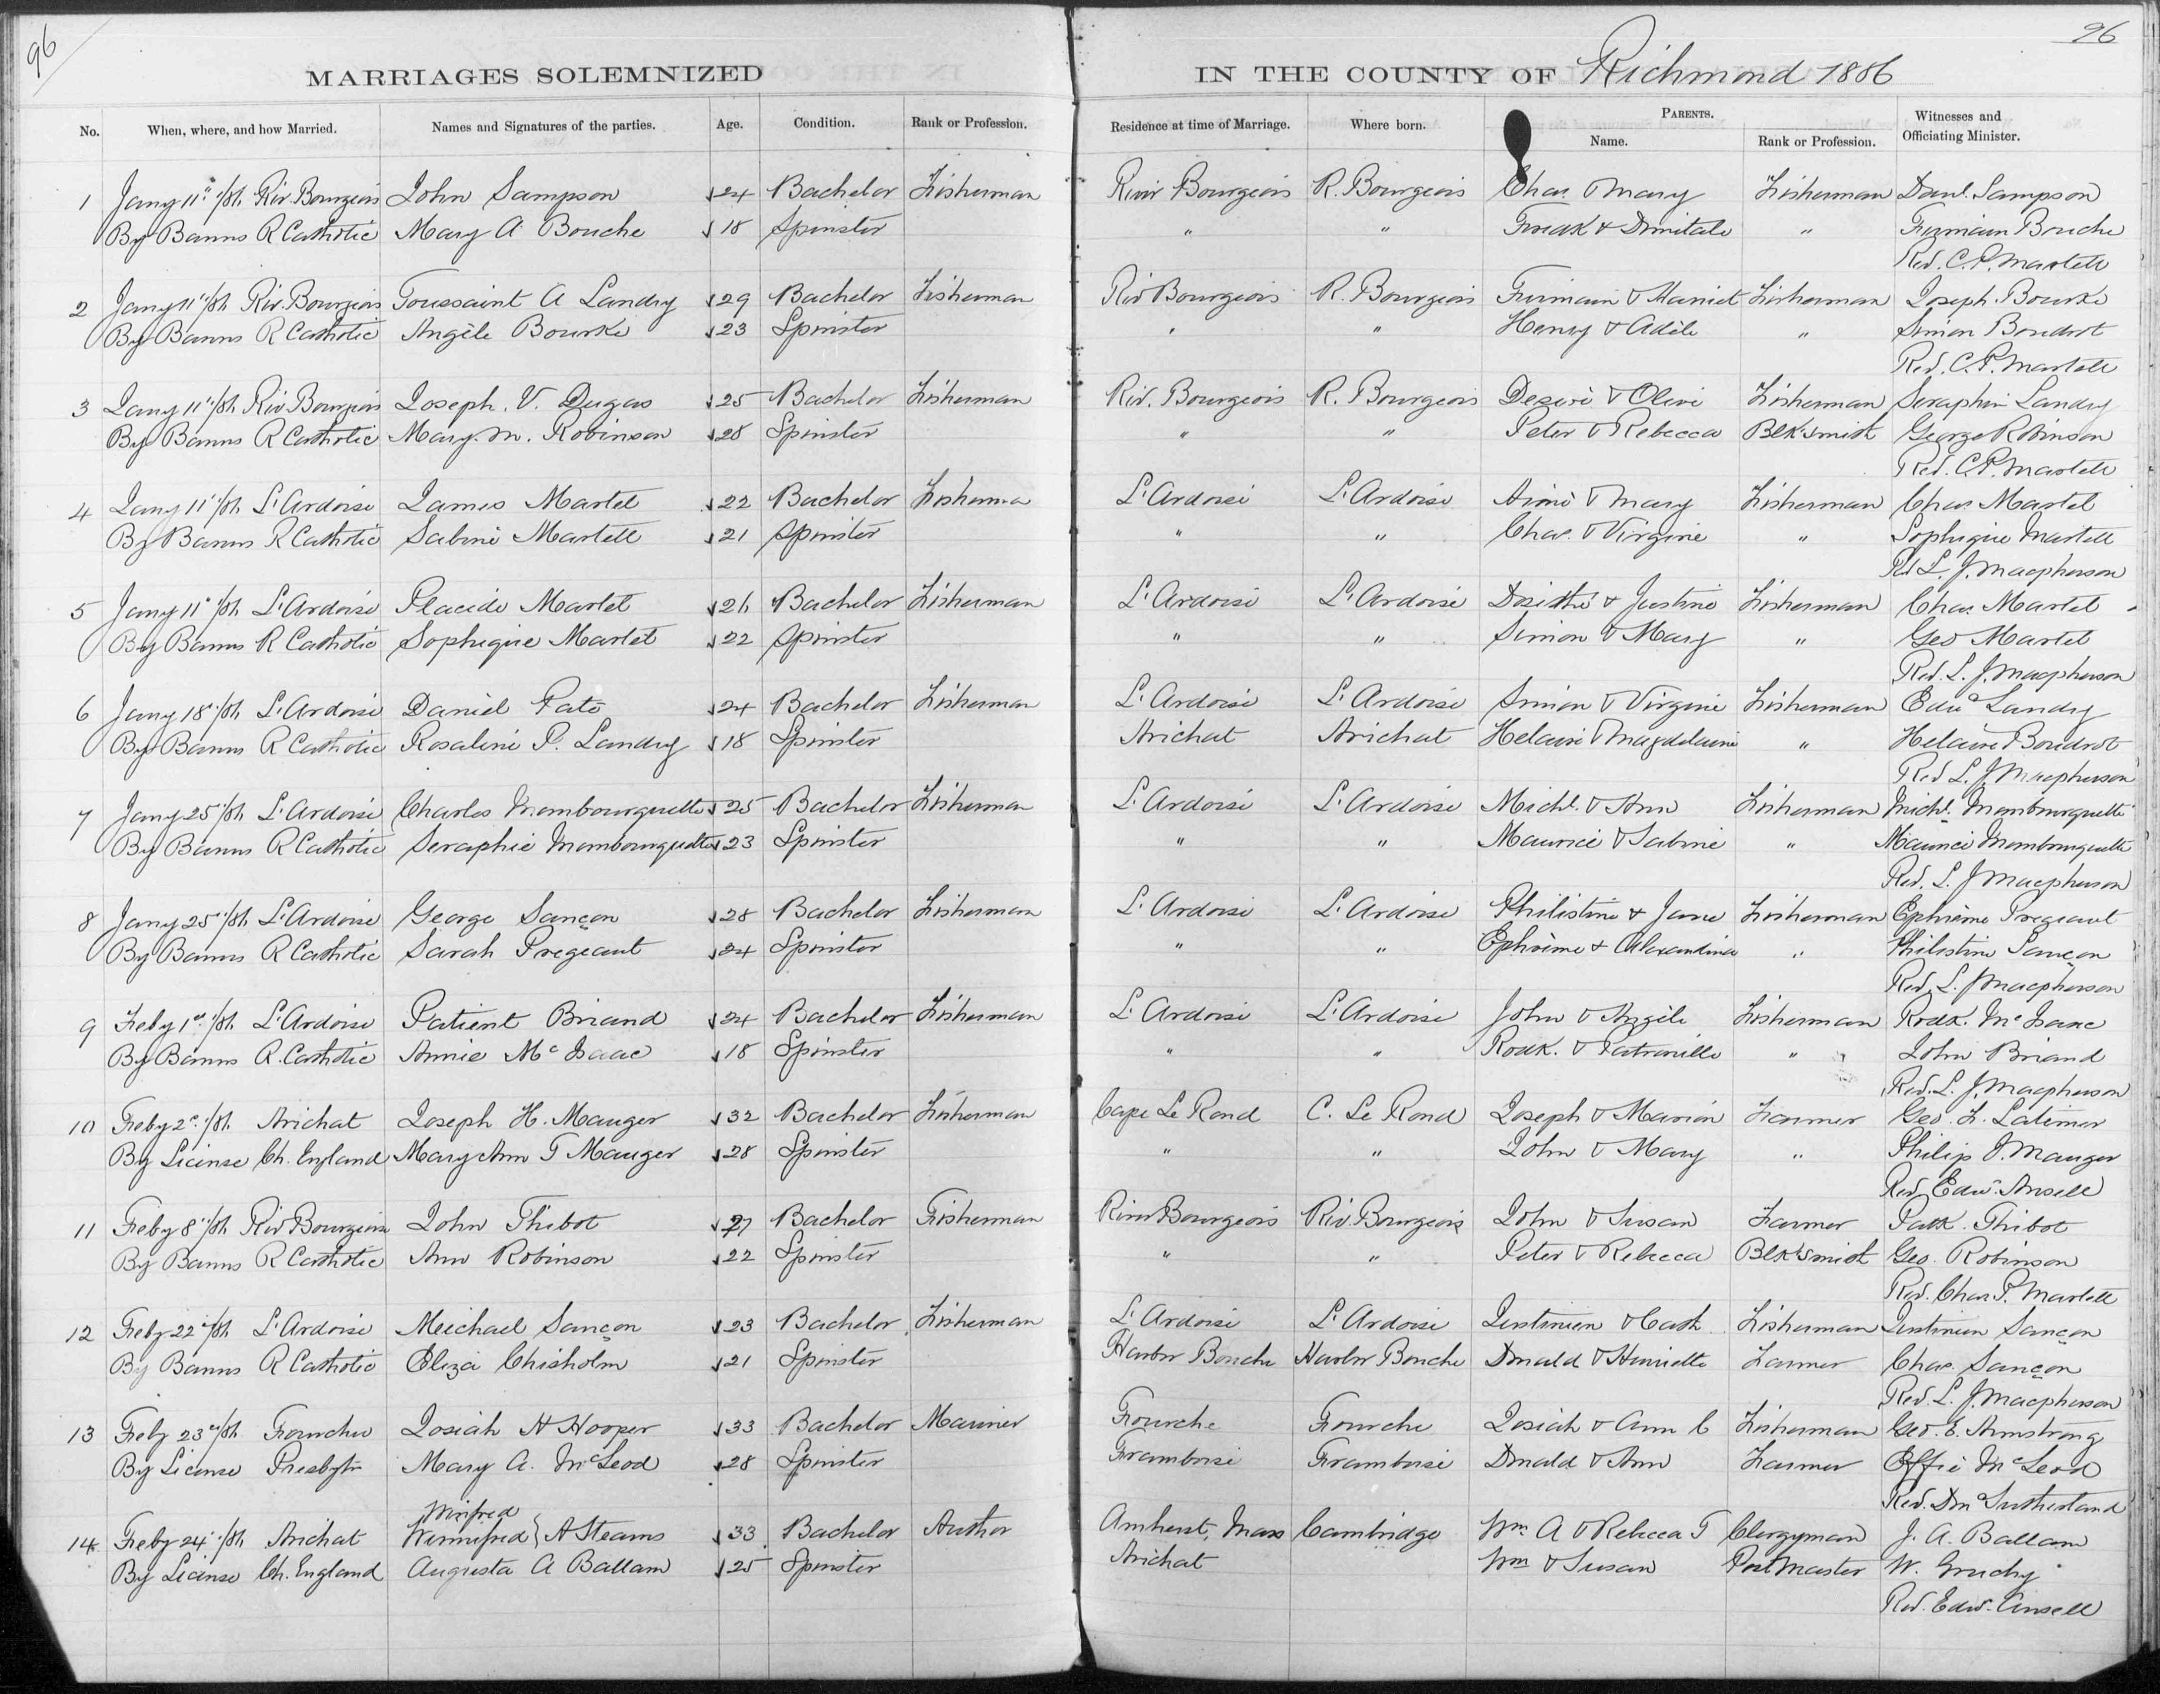 96
96
MARRIAGES SOLEMNIZED IN THE COUNTY OF Richmond 1886
No. When, where, and how Married. Names and Signatures of the parties. Age. Condition. Rank or Profession. Residence at time of Marriage. Where born. PARENTS. Name. Rank or Profession. Witnesses and Officiating Minister.
1 Jany 11" /86 Riv. Bourgeois John Sampson 24 Bachelor Fisherman River Bourgeois R. Bourgeois Chas. & Mary Fisherman Danl. Sampson
By Banns R Catholic Mary A Bouche 18 Spinster " " Fredk & " Firmain Bouche
Rev. C. P. Martell
2 Jany 11" /86 Riv. Bourgeois Toussaint A Landry 29 Bachelor Fisherman Riv Bourgeois R. Bourgeois Firmain & Harriet Fisherman Joseph Bourke
By Banns R Catholic Angèle Bourke 23 Spinster " " Henry & Adèle " Simon Boudrot
Rev. C. P. Martell
3 Jany 11" /86 Riv Bourgeois Joseph. V. Dugas 25 Bachelor Fisherman Riv. Bourgeois R. Bourgeois Desiré & Olive Fisherman Seraphin Landry
By Banns R Catholic Mary. M. Robinson 28 Spinster " " Peter & Rebecca Blk'smith George Robinson
Rev. C. P. Martell
4 Jany 11" /86 L'Ardoise James Martel 22 Bachelor Fisherma L'Ardoise L'Ardoise Aimé & Mary Fisherman Chas Martel
By Banns R Catholic Sabine Martell 21 Spinster " " Chas. & Virginie " Sophique Martell
Rd L. J. Macpherson
5 Jany 11" /86 L'Ardoise Placide Martel 26 Bachelor Fisherman L'Ardoise L'Ardoise Dosithé & Justine Fisherman Chas Martel
By Banns R Catholic Sophique Martel 22 Spinster " " Simon & Mary " Geo Martel
Rev. L. J. Macpherson
6 Jany 18" /86 L'Ardoise Daniel Pate 24 Bachelor Fisherman L'Ardoise L'Ardoise Simon & Virginie Fisherman Edwd Landry
By Banns R Catholic Rosaline P. Landry 18 Spinster Arichat Arichat Helaire & Magdelaine " Helaire Boudrot
Rev L. J. Macpherson
7 Jany 25" /86 L'Ardoise Charles Mombourquette 25 Bachelor Fisherman L'Ardoise L'Ardoise Michl. & Ann Fisherman Michl. Mombourquette
By Banns R Catholic Seraphie Mombourquette 23 Spinster " " Maurice & Sabine " Maurice Mombourquette
Rev. L. J Macpherson
8 Jany 25" /86 L'Ardoise George Sançon 28 Bachelor Fisherman L'Ardoise L'Ardoise Philistine & Jane Fisherman Ephrième Pregeant
By Banns R Catholic Sarah Pregeant 24 Spinster " " Ephrième & Alexandrina " Philistine Sançon
Rev. L. J Macpherson
9 Feby 1st /86 L'Ardoise Patient Briand 24 Bachelor Fisherman L'Ardoise L'Ardoise John & Angèle Fisherman Rodk. McIsaac
By Banns R. Catholic Annie McIsaac 18 Spinster " " Rodk. & Patronille " John Briand
Rev. L. J. Macpherson
10 Feby 2d /86 Arichat Joseph H. Mauger 32 Bachelor Fisherman Cape Le Rond C. Le Rond Joseph & Marion Farmer Geo. F. Latimer
By License Ch. England Mary Ann T Mauger 28 Spinster " " John & Mary " Philip J. Mauger
Rev. Edw. Ansell
11 Feby 8" /86 Riv Bourgeois John Thibot 27 Bachelor Fisherman River Bourgeois Riv Bourgeois John & Susan Farmer Patk. Thibot
By Banns R Catholic Ann Robinson 22 Spinster " " Peter & Rebecca Blk'smith Geo. Robinson
Rev. Chas. P. Martell
12 Feby 22d /86 L'Ardoise Meichael Sançon 23 Bachelor Fisherman L'Ardoise L'Ardoise Justinien & Cath Fisherman Justinien Sançon
By Banns R Catholic Eliza Chisholm 21 Spinster Harbor Bouche Harbor Bouche Donald & Henriette Farmer Chas. Sançon
Rev. L. J. Macpherson
13 Feby 23d /86 Fourchu Josiah H Hooper 33 Bachelor Mariner Fourche Fourche Josiah & Ann C Fisherman Geo. E. Armstrong
By License Presbytn Mary A. McLeod 28 Spinster Framboise Framboise Donald & Ann Farmer Effie McLeod
Rev. Dn Sutherland
Winfred
14 Feby 24" /86 Arichat Winnifred } A Stearns 33 Bachelor Author Amherst, Mass Cambridge Wm. A & Rebecca T Clergyman J. A. Ballam
By License Ch. England Augusta A Ballam 25 Spinster Arichat Wm & Susan Post Master W. Gruchy
Rev. Edw. Ansell